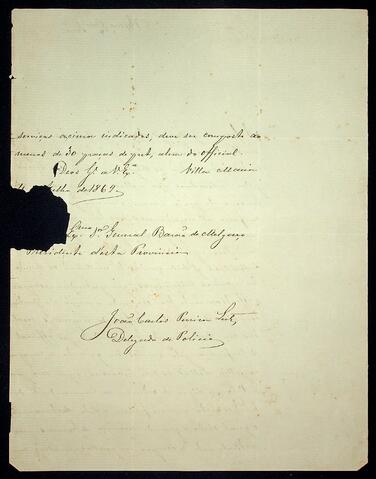 serviços acima indicados, deve ser composto ao
menos de 30 praças de pret, alem do official.
Deos G.e a V. Ex.a Villa Maria
de 1869.
Ex.mo Sr. General Barão de Melgaço
Presidente desta Provincia
João Carlos Pereira Leite
Delegado de Policia